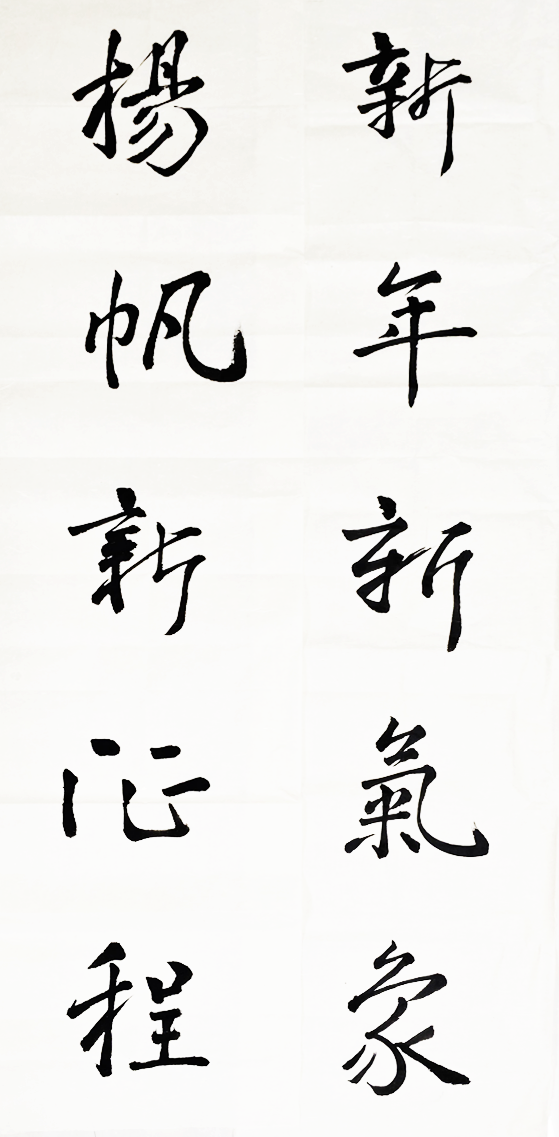 新年新氣象
揚帆新征程